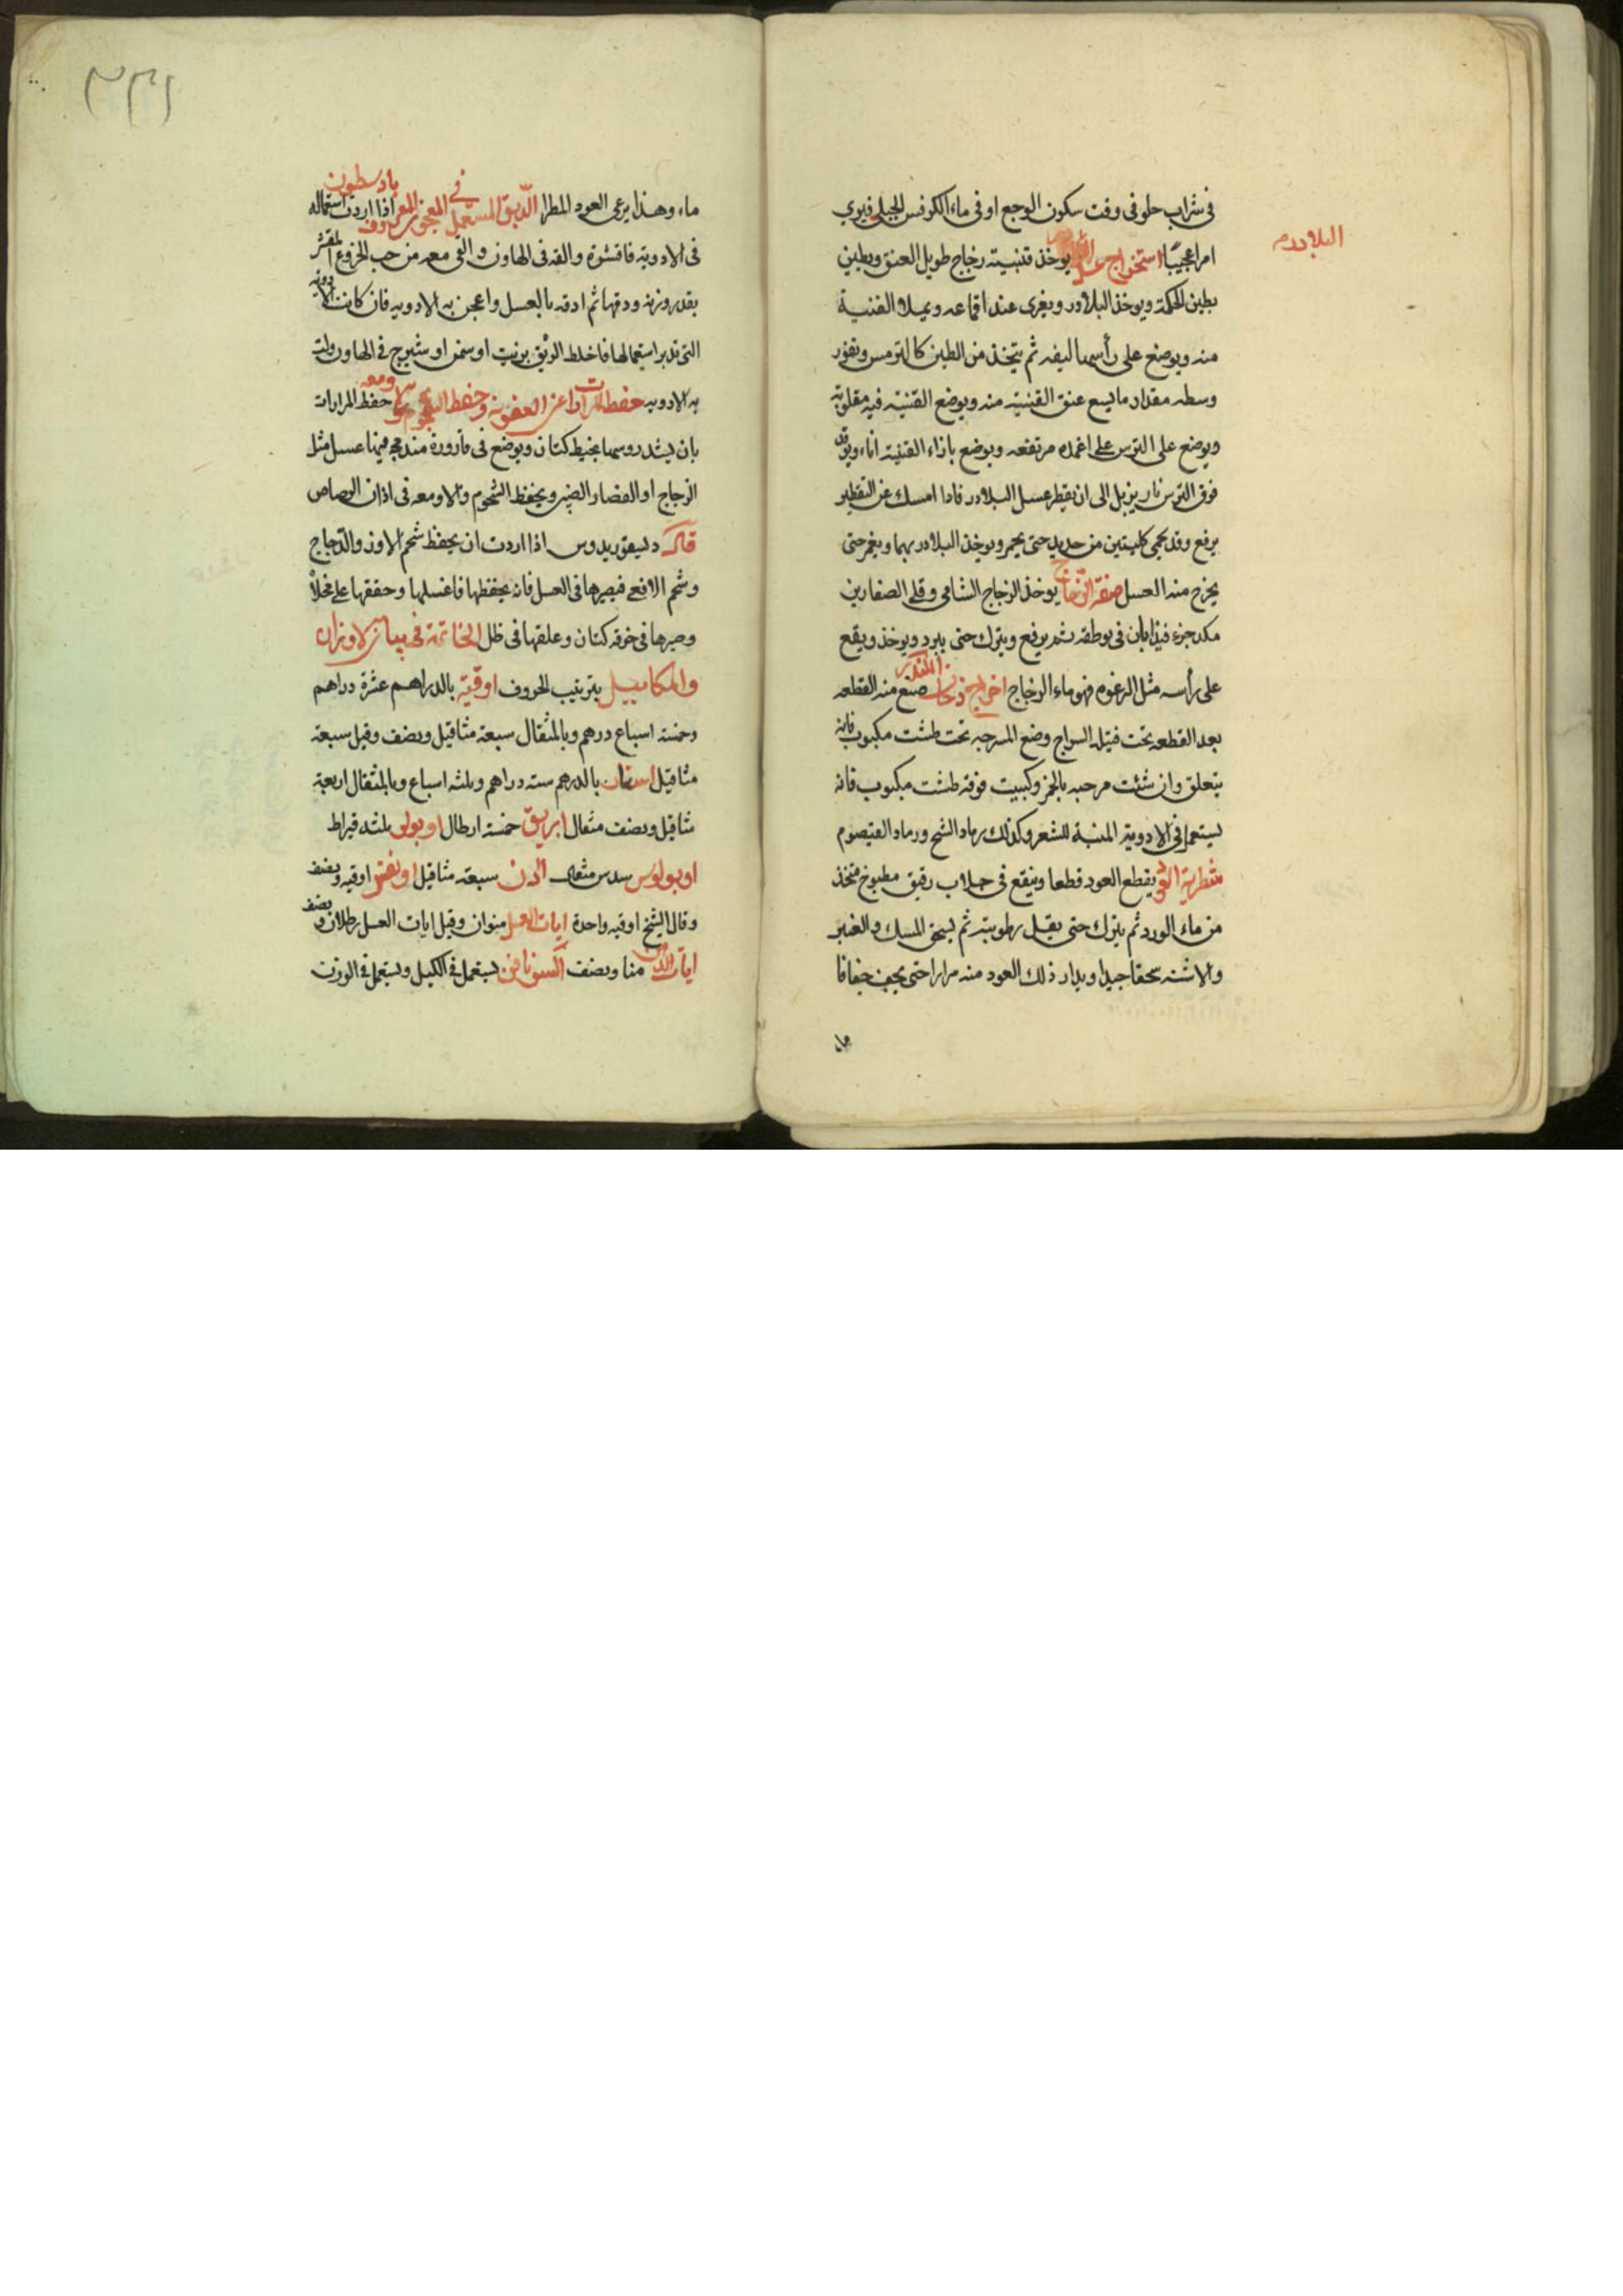 فى شراب حلو فى وقت سكون الوجع او فى ماء الكرفس الجبلى فيرى
البلادر
امرا عجيبًا استخراج عسل البلادر يوخذ قنينة زجاج طويل العنق ويطين
بطين الحكمة ويوخذ البلادر ويغرى عند اقماعه ويملا القنينة
منه ويوضع على رأسها ليفه ثم يتخذ من الطين كالترس ويقور
وسطه مقدار ما يسع عنق القنينة منه ويوضع القنينة فيه مقلوبة
ويوضع على الترس على اعمده مرتفعه ويوضع بازاء القنينة اناء ويوقد
فوق الترس نار بزبل الى ان يقطر عسل البلادر فاذا امسك عن التقطير
يرفع وقد يحمى كلبتين من حديد حتى يحمر ويوخذ البلادر بهما ويغمز حتى
يخرج منه العسل صنعة الزجاج يوخذ الزجاج الشامى وقلى الصفارين
مكد جزء فيذابان فى بوطقه ثم يرفع ويترك حتى يبرد ويوخذ ويقع
على رأسه مثل الرغوه فهو ماء الزجاج اخراج دخان الكندر صنع منه القطعه
بعد القطعه تحت فتيلة السراج وضع المسرجه تحت طشت مكبوب فانه
يتعلق وان شئت مرحبه بالجمر وكببت فوقه طشت مكبوب فانه
يستعمل فى الادوية المنبتة للشعر وكذلك رماد الشيح ورماد القيصوم
مطرية العود يقطع العود قطعا وينقع فى جلاب رقيق مطبوخ متخذ
من ماء الورد ثم يترك حتى يقبل رطوبته ثم يسحق المسك والعنبر
والاشنه سحقا جيدا ويدار ذلك العود منه مرارا حتى يجف جفافا
ما
٢٣١
ماء وهذا يرعى العود المطرا الدبق المستعمل فى المعجون المعروف بادسطون اذا اردت استعماله
فى الادوية فاقشره والقه فى الهاون والقى معه من حب الخروع المقشر
بقدر وزنه ودقها ثم ادقه بالعسل واعجن به الادويه فان كانت الادويه
التى تدبر استعمالها فاخلط الدبق بزيت او سمن او شيرج فى الهاون ولت
به الادويه حفظ المرارات عن العفونة وحفظ الشحوم والاومعه حفظ المرارات
بان يشد روسها بخيط كتان ويوضع فى قارورة مندمجه فيها عسل مثل
الزجاج او الغضار الصينى ويحفظ الشحوم والاومعه فى اذان الرصاص
قال ديسقوريدوس اذا اردت ان يحفظ شحم الاوز والدجاج
وشحم الافعى فصيرها فى العسل فانه يحفظها فاغسلها وحققها على مخلا
وصيرها فى خرقه كتان وعلقها فى ظل الخاتمة فى بيان الاوزان
والمكاييل بترتيب الحروف اوقية بالدراهم عشرة دراهم
وخمسة اسباع درهم وبالمثقال سبعة مثاقيل ونصف وقيل سبعة
مثاقيل استار بالدرهم ستة دراهم وثلثه اسباع وبالمثقال اربعة
مثاقيل ونصف مثقال ابريق خمسة ارطال اوبولى ثلثه قيراط
اوبولوس سدس مثقال الدن سبعة مثاقيل اونض اوقيه ونصف
وقال الشيخ اوقيه واحدة ايات العسل منوان وقيل ايات العسل رطلان ونصف
ايات الدهن منا ونصف اكسونافن يستعمل فى الكيل ويستعمل فى الوزن